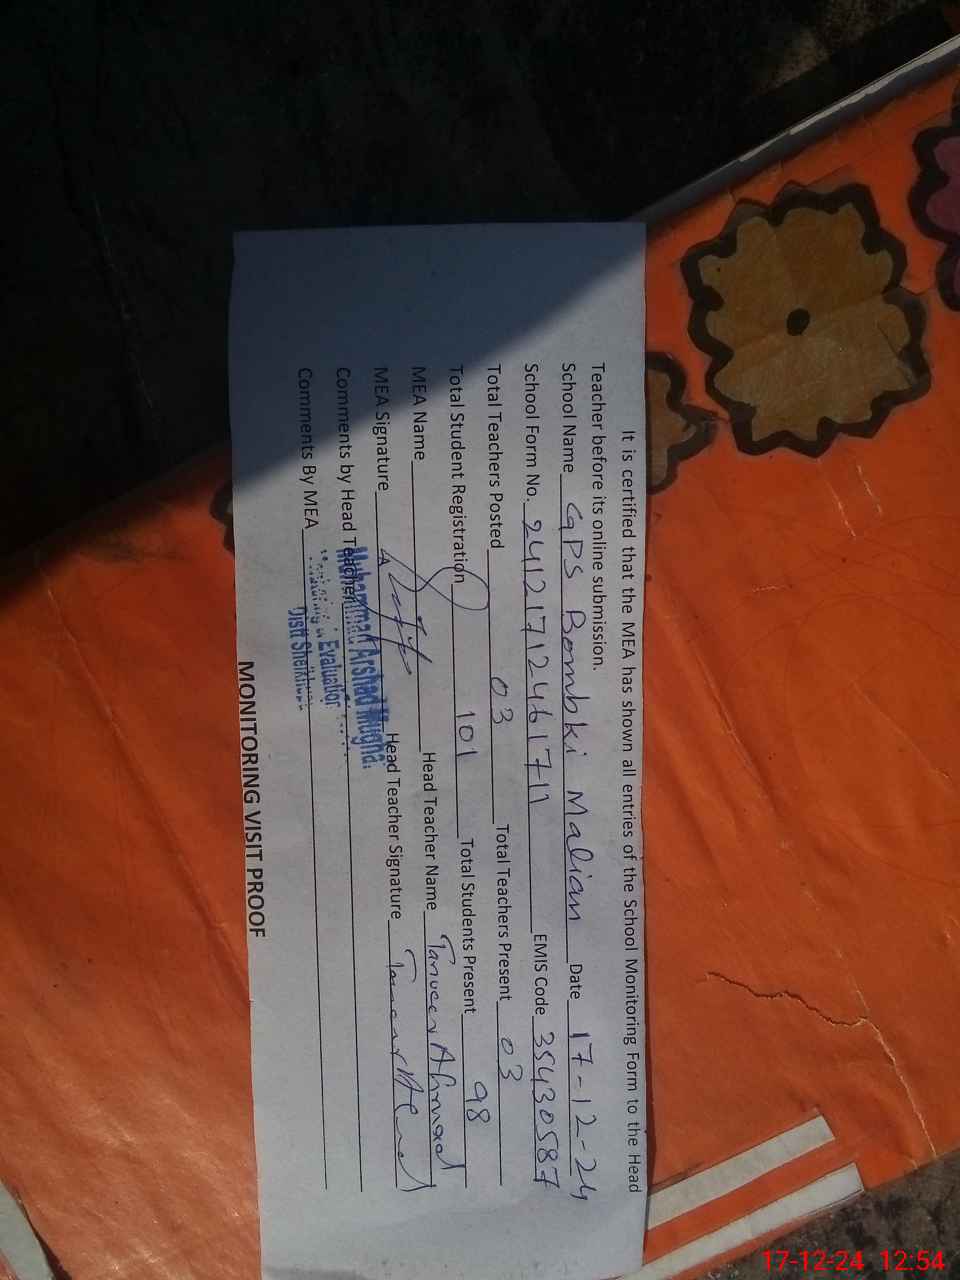 MONITORING VISIT PROOF
It is certified that the MEA has shown all entries of the School Monitoring Form to the Head
Teacher before its online submission.
School Name GPS Bombki Malian Date 17-12-24
School Form No. EMIS Code 35430587
Total Teachers Posted 03 Total Teachers Present 03
Total Student Registration 101 Total Students Present 98
MEA Name Head Teacher Name Tanveer Ahmad
MEA Signature Head Teacher Signature
Muhammad Arshad Mughal
Comments by Head Teacher
Monitoring & Evaluation
Comments By MEA
Distt Sheikhupura
17-12-24 12:54